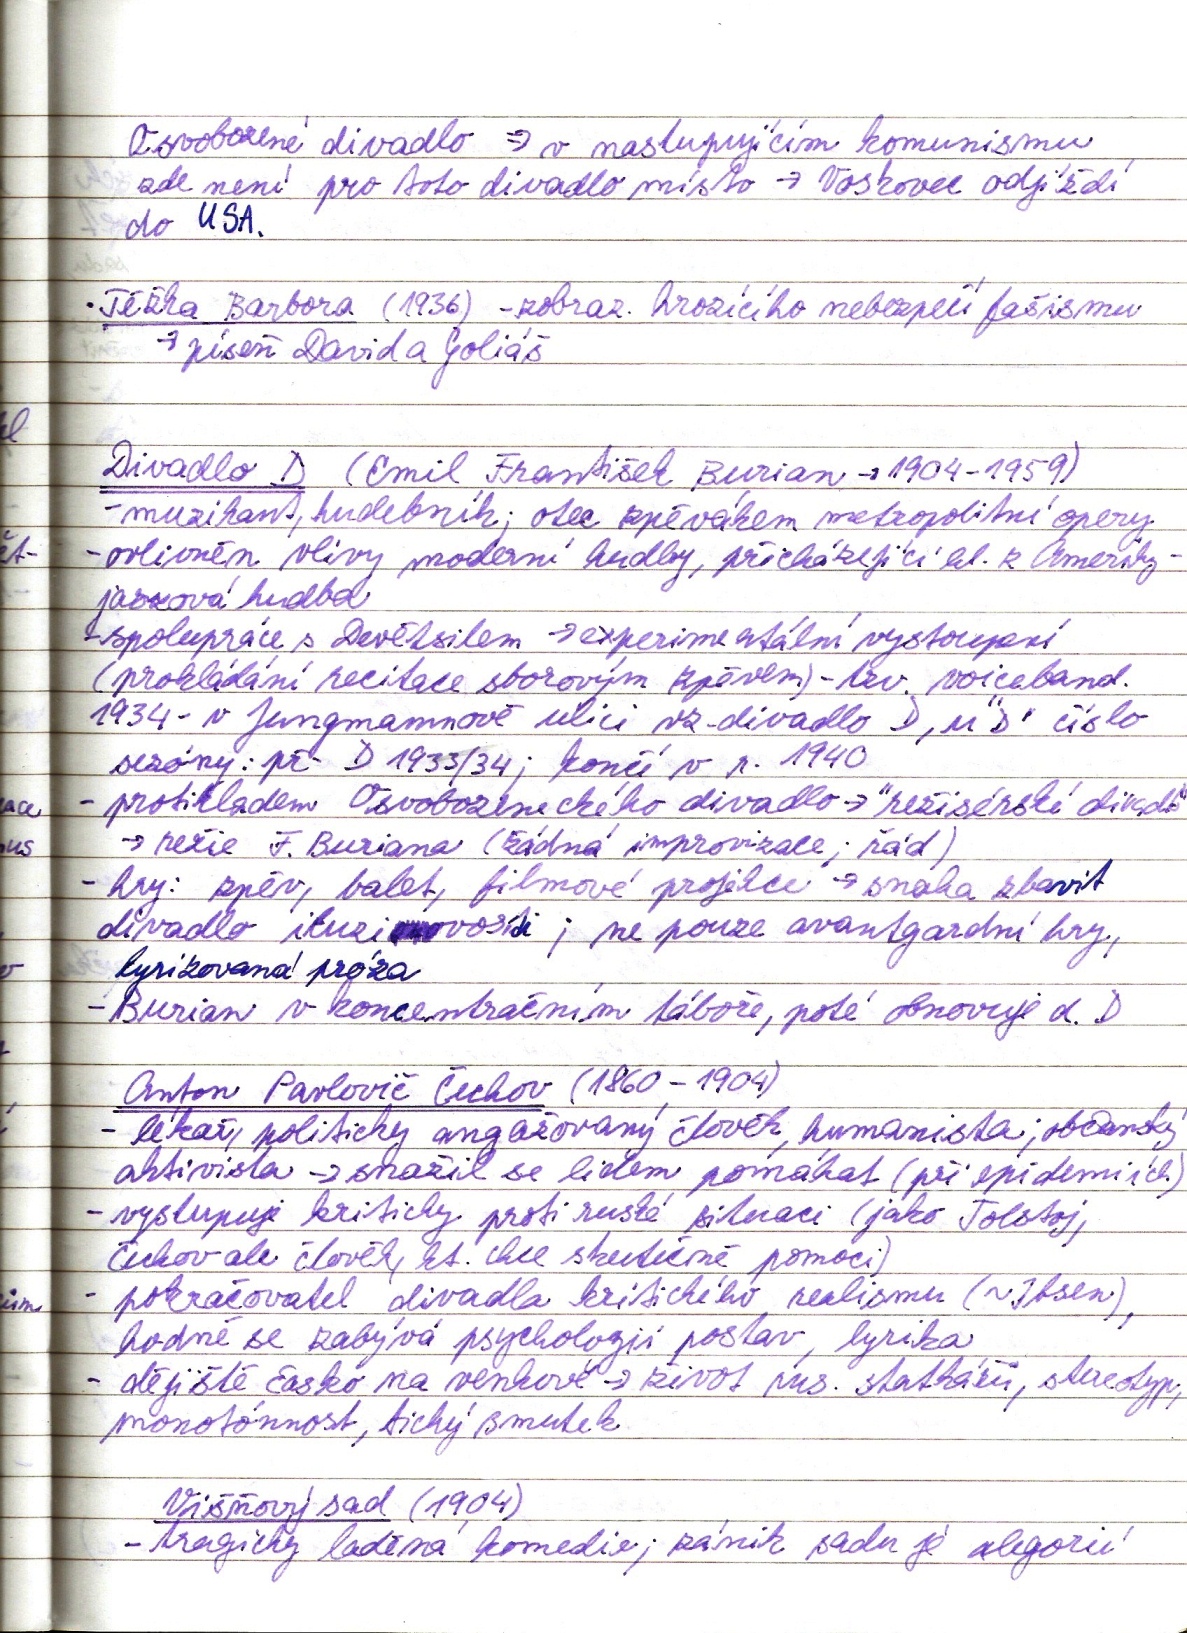 Osvobozené divadlo => v nastupujícím komunismu
zde není pro toto divadlo místo → Voskovec odjíždí
do USA.
• Těžká Barbora (1936) - zobraz. hrozícího nebezpečí fašismu
→ píseň David a Goliáš
Divadlo D (Emil František Burian → 1904-1959)
- muzikant, hudebník; otec zpěvákem metropolitní opery
- ovlivněn vlivy moderní hudby, přicházející hl. z Ameriky -
jazzová hudba
- spolupráce s Devětsilem → experimentální vystoupení
(prokládání recitace sborovým zpěvem) - tzv. voiceband.
1934 - v Jungmannově ulici vz. divadlo D, u "D" číslo
sezóny: př. D 1933/34; končí v r. 1940
- protikladem Osvobozeneckého divadlo → "režisérské divadlo"
→ režie F. Buriana (žádná improvizace; řád)
- hry: zpěv, balet, filmové projekce → snaha zbavit
divadlo iluzivosti ; ne pouze avantgardní hry,
lyrizovaná próza
- Burian v koncentračním táboře, poté obnovuje d. D
Anton Pavlovič Čechov (1860 - 1904)
- lékař, politicky angažovaný člověk, humanista; občanský
aktivista → snažil se lidem pomáhat (při epidemiích)
- vystupuje kriticky proti ruské situaci (jako Tolstoj,
Čechov ale člověk, kt. chce skutečně pomoci)
- pokračovatel divadla kritického realismu (~Ibsen),
hodně se zabývá psychologií postav, lyrika
- dějiště často na venkově → život rus. statkářů, stereotyp,
monotónnost, tichý smutek
Višňový sad (1904)
- tragicky laděná komedie; zánik sadu je alegorií